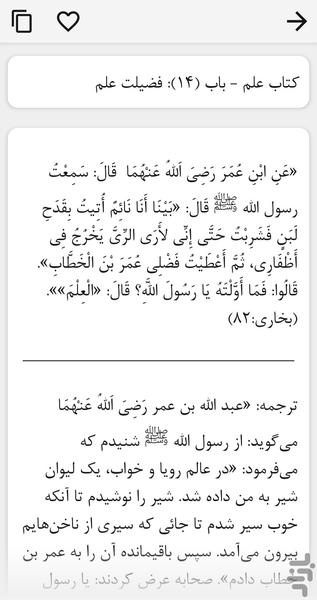 کتاب علم - باب (۱۴): فضیلت علم
«عَنِ ابْنِ عُمَرَ رَضِيَ اَللهُ عَنْهُمَا قَالَ: سَمِعْتُ
رسول الله ﷺ قَالَ: «بَيْنَا أَنَا نَائِمٌ أُتِيتُ بِقَدَحِ
لَبَنٍ فَشَرِبْتُ حَتَّى إِنِّى لأَرَى الرِّىَّ يَخْرُجُ فِى
أَظْفَارِى، ثُمَّ أَعْطَيْتُ فَضْلِى عُمَرَ بْنَ الْخَطَّابِ».
قَالُوا: فَمَا أَوَّلْتَهُ يَا رَسُولَ اللَّهِ؟ قَالَ: «الْعِلْمَ»».
(بخاری:۸۲)
ترجمه: «عبد الله بن عمر رَضِيَ اَللهُ عَنْهُمَا
می‌گوید: از رسول الله ﷺ شنیدم که
می‌فرمود: «در عالم رویا و خواب، یک لیوان
شیر به من داده شد. شیر را نوشیدم تا آنکه
خوب سیر شدم تا جائی که سیری از ناخن‌هایم
بیرون می‌آمد. سپس باقیمانده آن را به عمر بن
خطاب دادم». صحابه عرض کردند: یا رسول
بازار